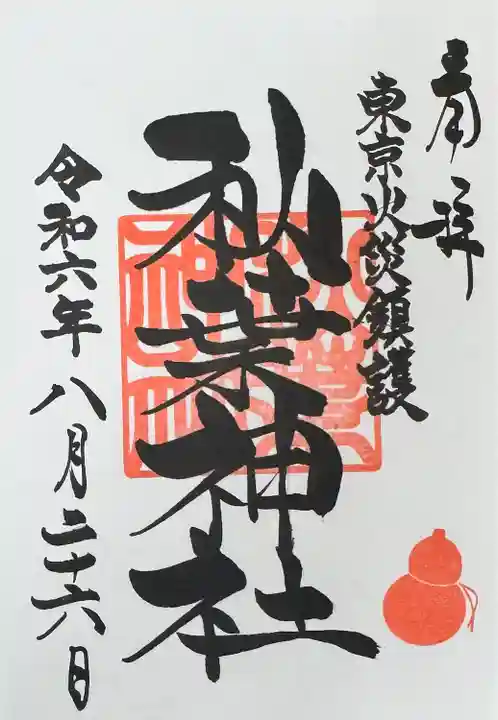 奉拝
東京火災鎮護
秋葉神社
令和六年八月二十六日